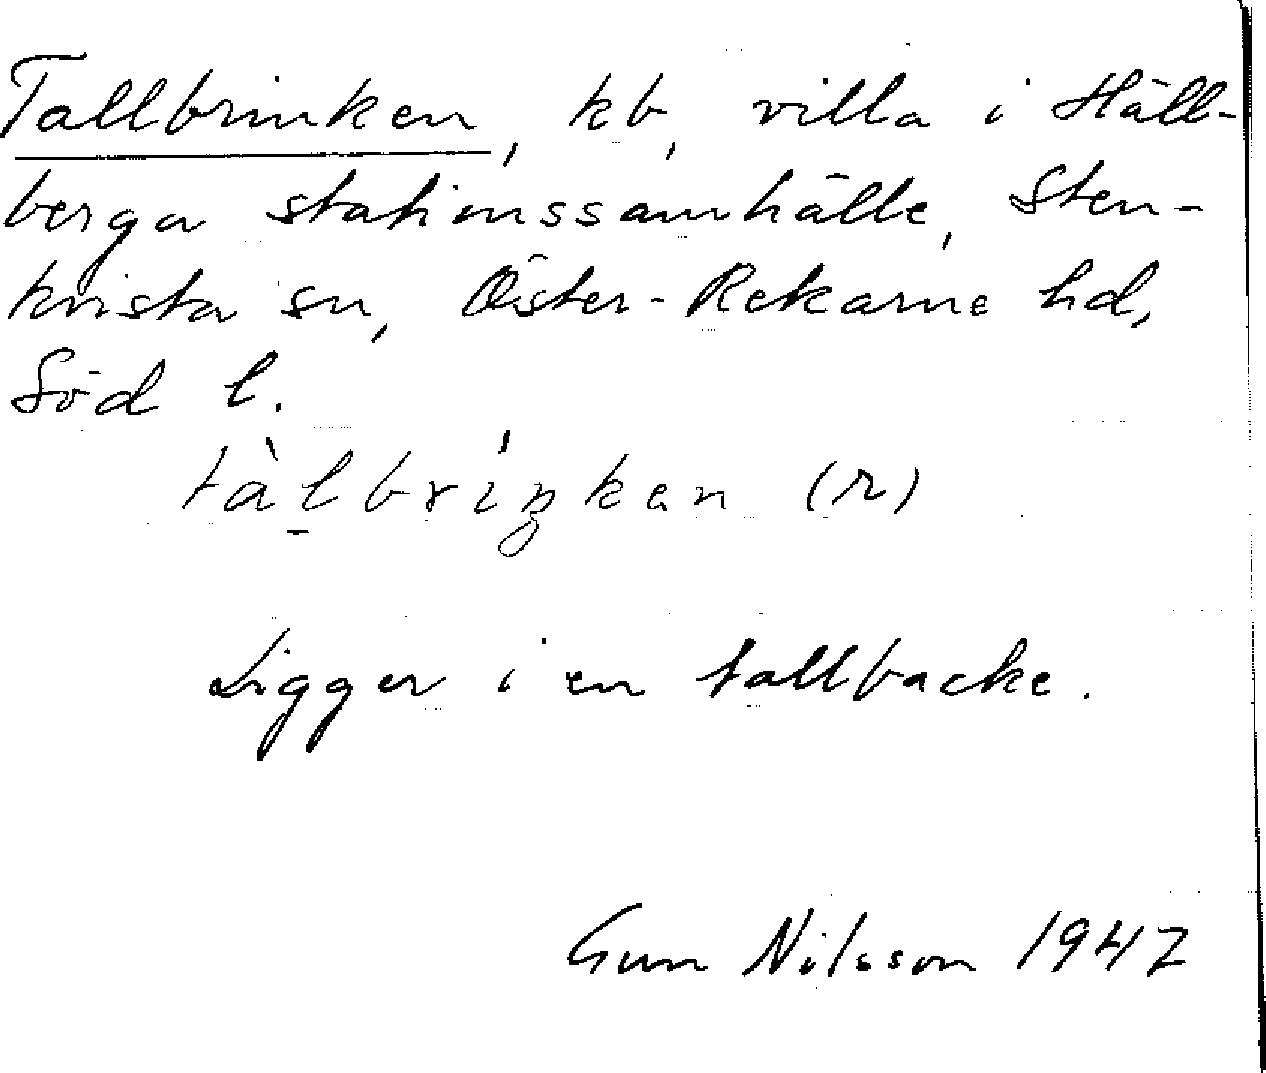 Tallbrinken, kb, villa i Häll-
berga stationssamhälle, Sten-
kvista sn, Öster-Rekarne hd,
Söd l.
tàl̠bríŋkan (r)
Ligger i en tallbacke.
Gun Nilsson 1947